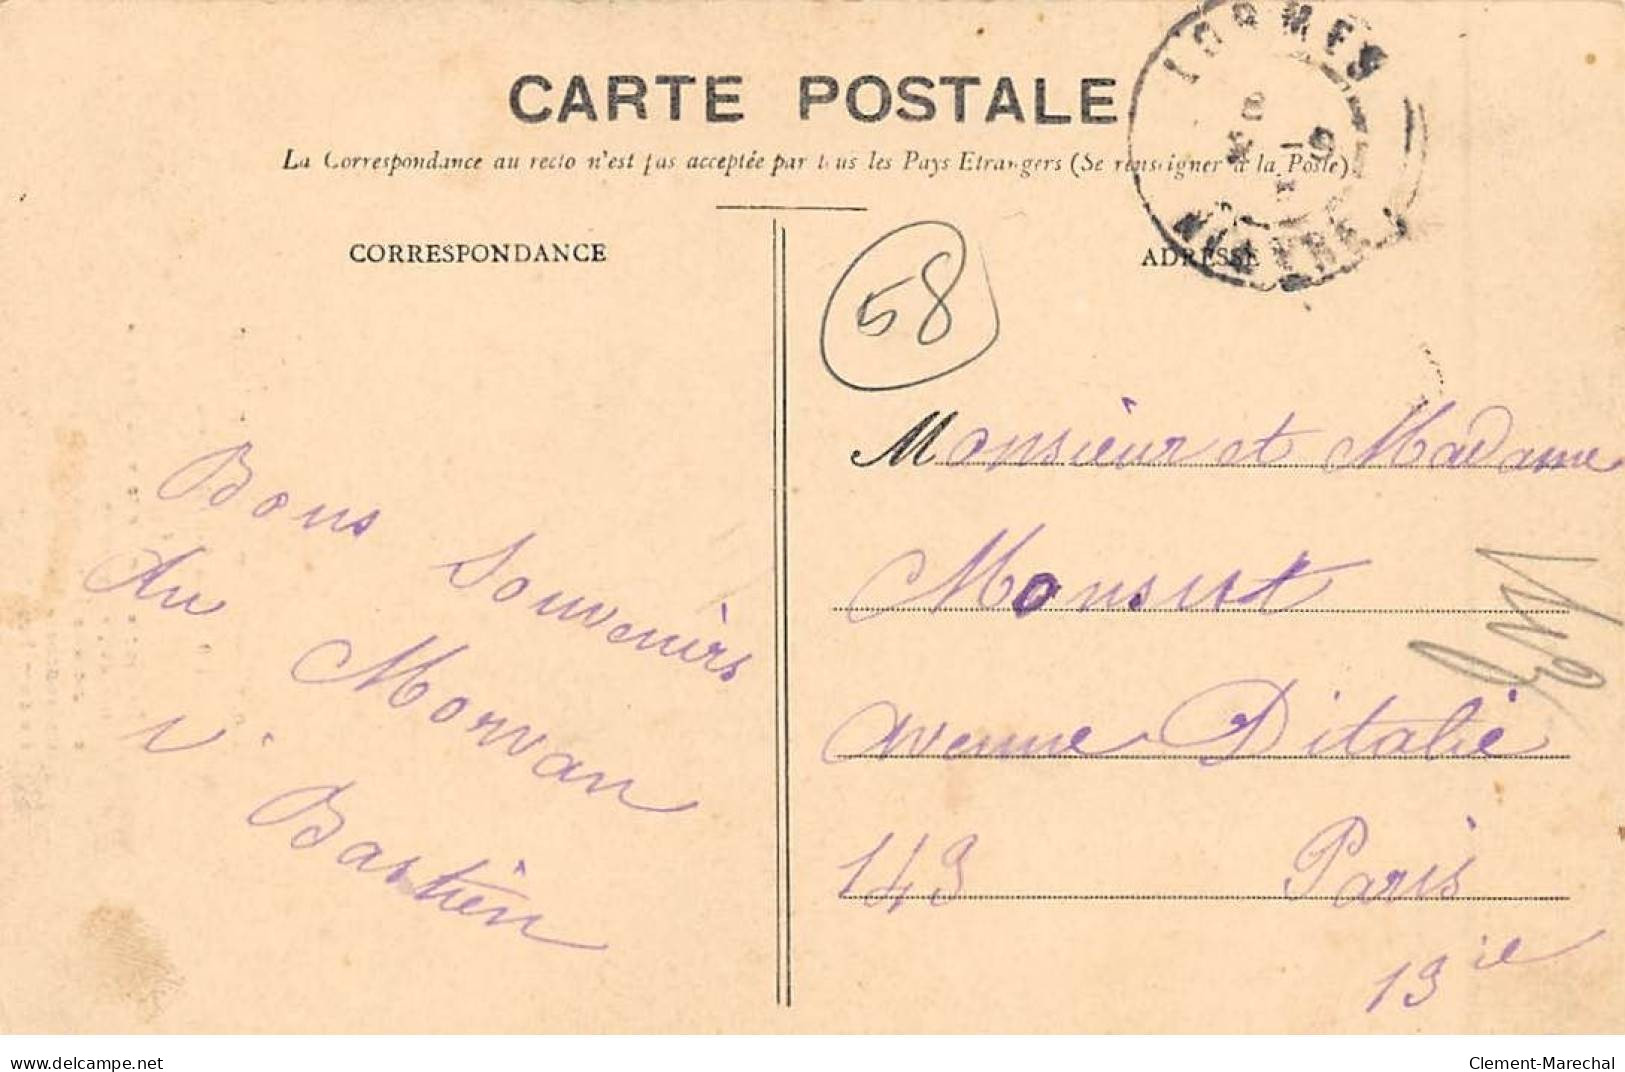 CARTE POSTALE
La Correspondance au recto n'est pas acceptée par tous les Pays Etrangers (Se renseigner à la Poste)
LORMES
NIEVRE
CORRESPONDANCE
ADRESSE
58
Bons Souvenirs
du Morvan
V. Bastien
Monsieur et Madame
Monsut
avenue D'italie
143 Paris
13ie
www.delcampe.net
Clement-Marechal